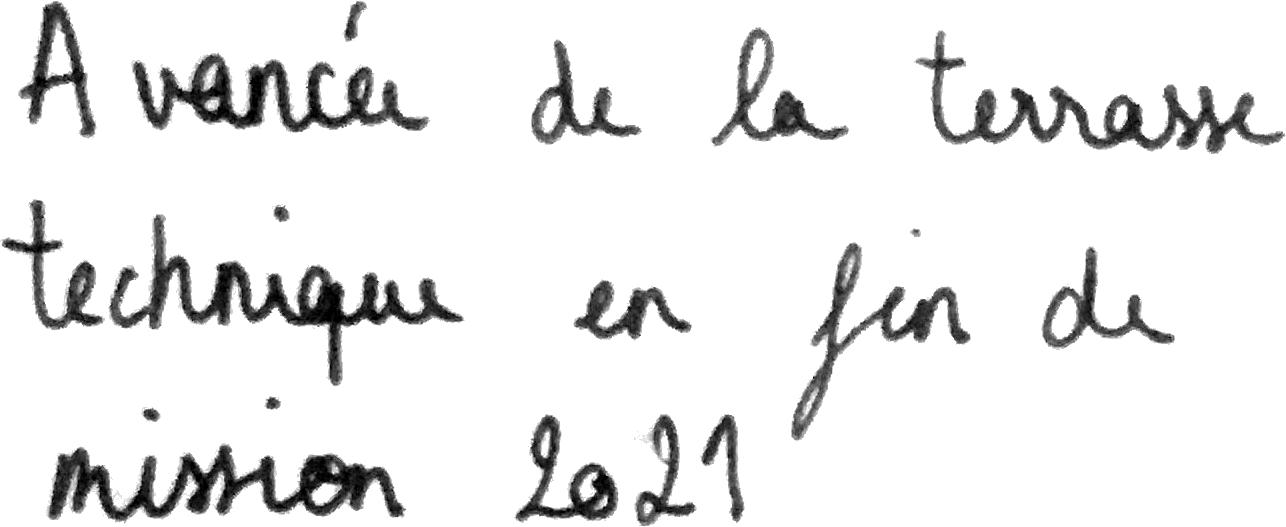 Avancée de la terrasse
technique en fin de
mission 2021